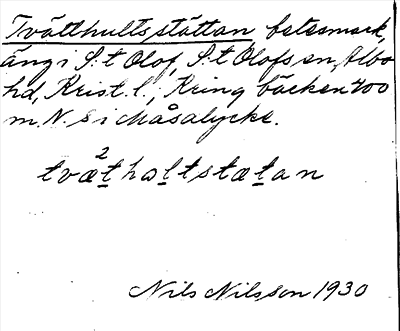 Tvätthultsstättan betesmark,
äng i S:t Olof, S:t Olofs sn, Albo
hd, Krist. l., Kring bäcken 400
m. N. S i Måsalycke.
tvæ²t̲hol̲tstæt̲an
Nils Nilsson 1930